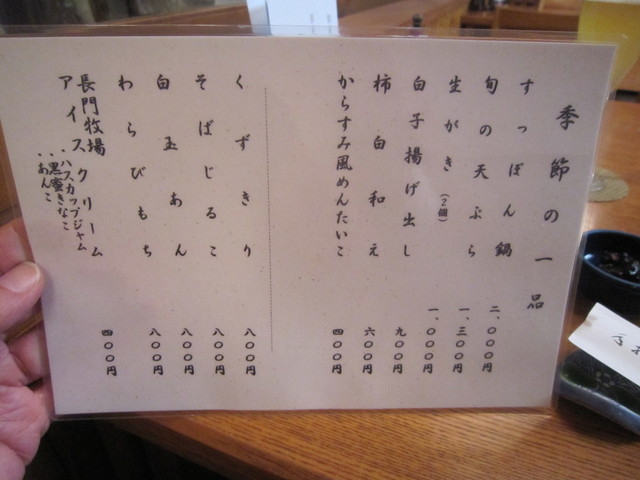 季節の一品
すっぽん鍋 二、〇〇〇円
旬の天ぷら 一、三〇〇円
生がき（2個） 一、〇〇〇円
白子揚げ出し 九〇〇円
柿白和え 六〇〇円
からすみ風めんたいこ 四〇〇円
くずきり 八〇〇円
そばじるこ 八〇〇円
白玉あん 八〇〇円
わらびもち 八〇〇円
長門牧場
アイスクリーム 四〇〇円
・ハスカップジャム
・黒蜜きなこ
・あんこ